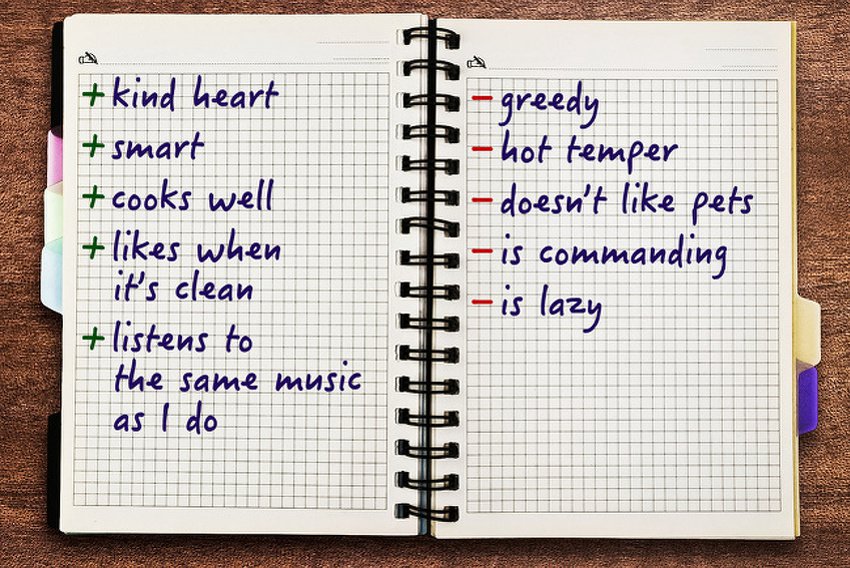 + kind heart
+ smart
+ cooks well
+ likes when
it's clean
+ listens to
the same music
as I do
− greedy
− hot temper
− doesn't like pets
− is commanding
− is lazy